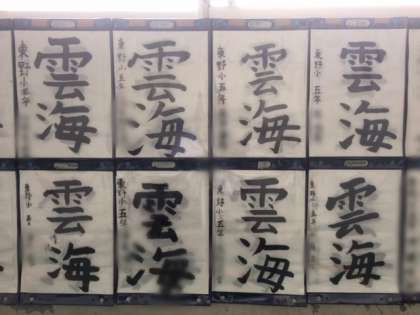 雲海
東野小五年
雲海
東野小五年
雲海
東野小五年
雲海
東野小 五年
雲海
東野小 五年
雲海
東野小五年
雲海
東野小五年
雲海
東野小五年